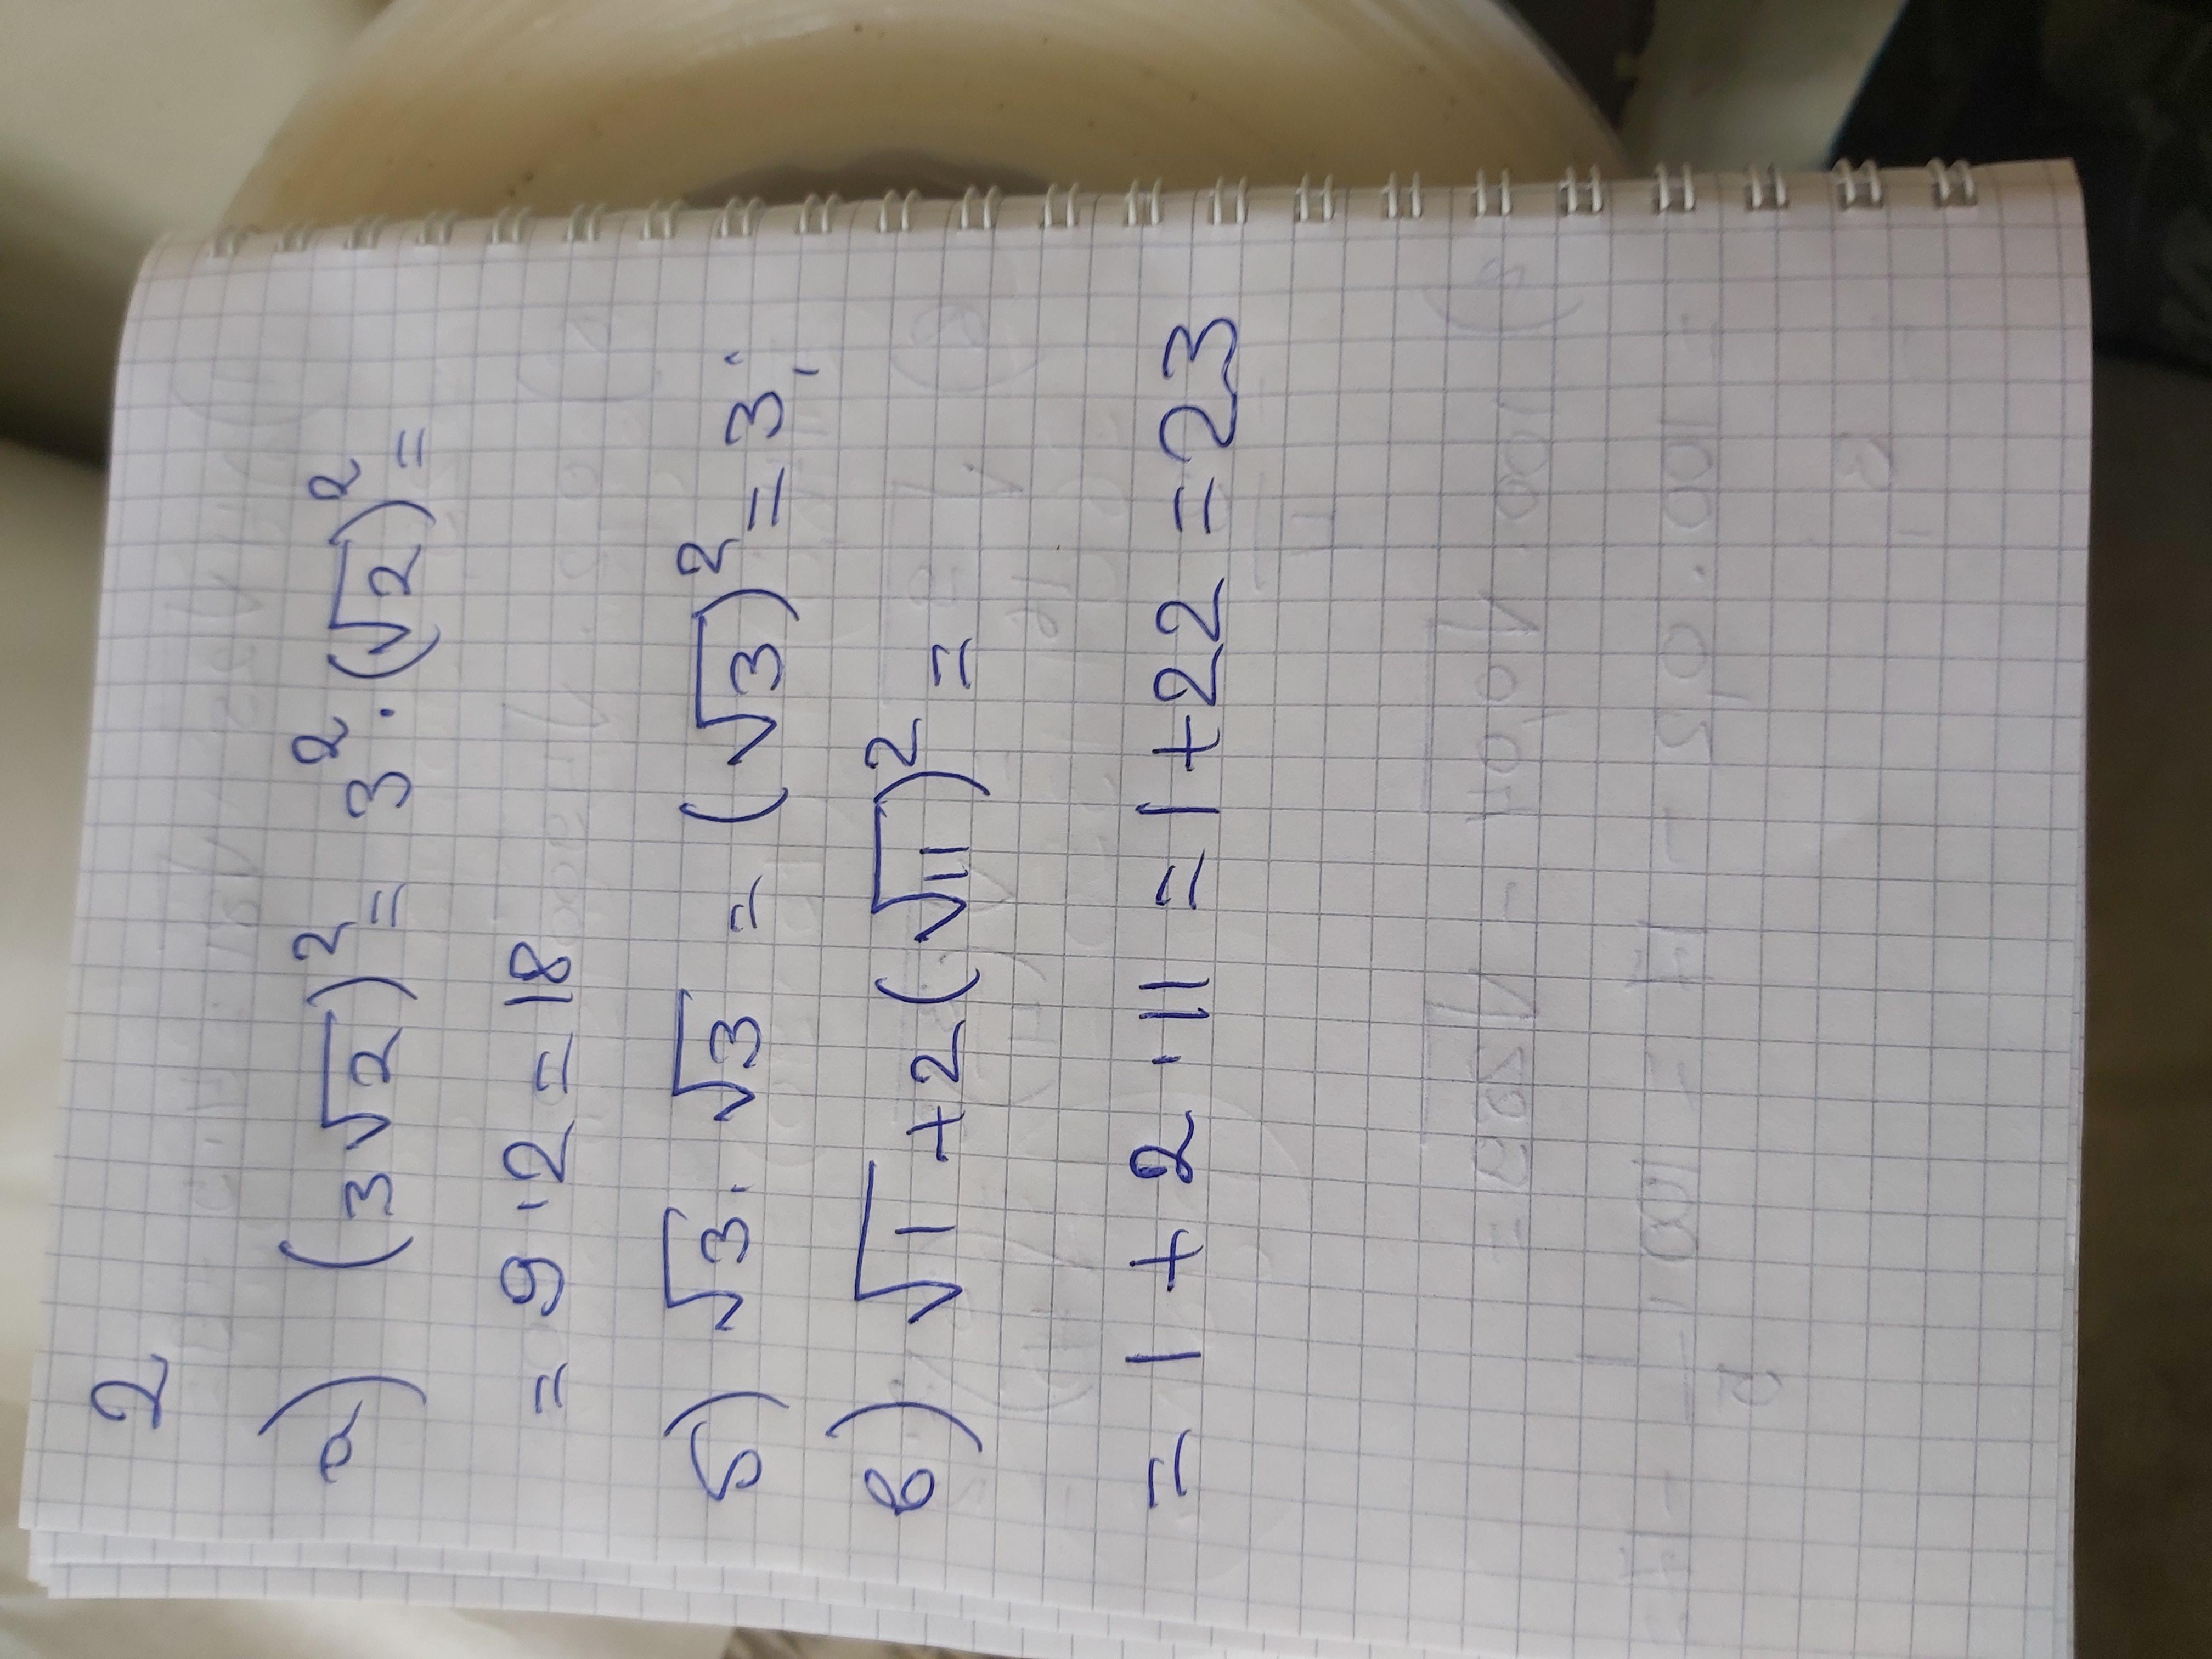 2
а) (3√2)² = 3² · (√2)² =
= 9 · 2 = 18
б) √3 · √3 = (√3)² = 3;
в) √1 + 2(√11)² =
= 1 + 2 · 11 = 1 + 22 = 23